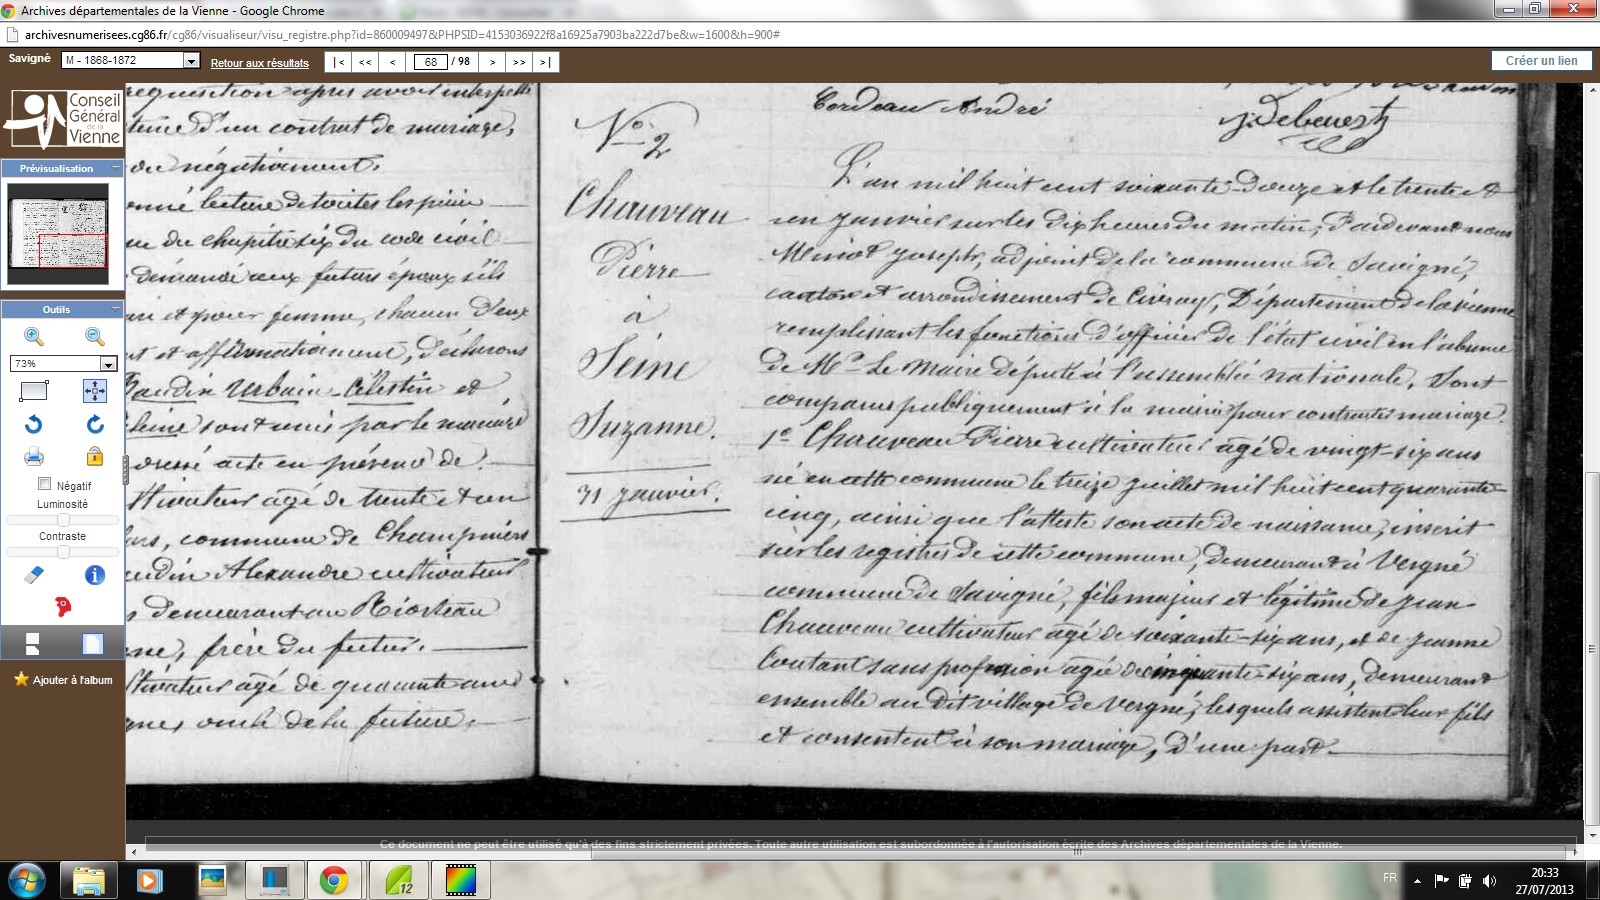 Archives départementales de la Vienne - Google Chrome
archivesnumerisees.cg86.fr/cg86/visualiseur/visu_registre.php?id=860009497&PHPSID=4153036922f8a16925a7903ba222d7be&w=1600&h=900#
Savigné
M - 1868-1872
Retour aux résultats
|< << < 68 / 98 > >> >|
Créer un lien
Conseil
Général
de la
Vienne
Prévisualisation
Outils
73%
Négatif
Luminosité
Contraste
Ajouter à l'album
réquisition après avoir interpellé
d'un contrat de mariage,
ou négativement.
donné lecture de toutes les pièces
du chapitre six du code civil
demandé aux futurs époux s'ils
et pour femme, chacun d'eux
et affirmativement, déclarons
Gaudin Urbain-Célestin et
sont unis par le mariage
dressé acte en présence de
cultivateur âgé de trente et un
commune de Champniers
Gaudin Alexandre cultivateur
demeurant au
frère du futur.
cultivateur âgé de quarante ans
oncle de la future.
Cordeau André
No. 2
Chauveau
Pierre
à
Seine
Suzanne.
31 janvier.
L'an mil huit cent soixante-douze et le trente et
un janvier sur les dix heures du matin, Pardevant nous
Miniot Joseph, adjoint de la commune de Savigné,
canton et arrondissement de Civray, Département de la vienne
remplissant les fonctions d'officier de l'état civil en l'absence
de Mr. Le Maire député à l'assemblée nationale. Sont
comparus publiquement à la mairie pour contracter mariage.
1e Chauveau Pierre cultivateur âgé de vingt-six ans
né en cette commune le treize juillet mil huit cent quarante-
cinq, ainsi que l'atteste son acte de naissance, inscrit
sur les registres de cette commune, demeurant à Vergné
commune de Savigné, fils majeur et légitime de Jean
Chauveau cultivateur âgé de soixante-six ans, et de Jeanne
Coutant sans profession âgée de cinquante-six ans, demeurant
ensemble au dit village de Vergné, lesquels assistent leur fils
et consentent à son mariage, D'une part.
Ce document ne peut être utilisé qu'à des fins strictement privées. Toute autre utilisation est subordonnée à l'autorisation écrite des Archives départementales de la Vienne.
12
FR
20:33
27/07/2013